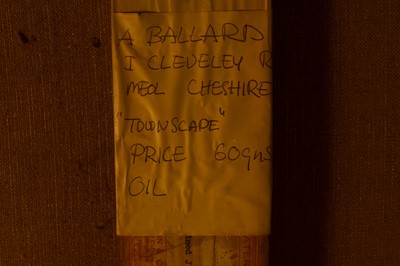 A BALLARD
I CLEVELEY R
MEOL CHESHIRE
"TOWNSCAPE"
PRICE 60gns
OIL